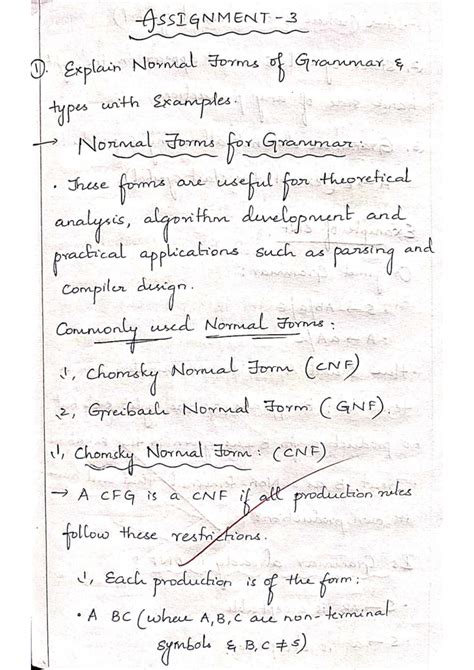 ASSIGNMENT - 3
①. Explain Normal Forms of Grammar &
types with Examples.
→ Normal Forms for Grammar:
• These forms are useful for theoretical
analysis, algorithm development and
practical applications such as parsing and
compiler design.
Commonly used Normal Forms:
1, Chomsky Normal Form (CNF)
2, Greibach Normal Form (GNF).
1, Chomsky Normal Form: (CNF)
→ A CFG is a CNF if all production rules
follow these restrictions.
1, Each production is of the form:
• A BC (where A,B,C are non-terminal
symbols & B,C ≠ S)